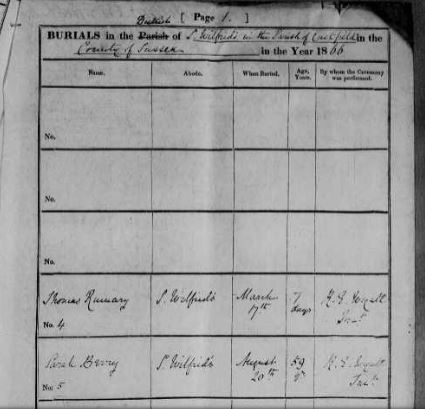 District [ Page 1. ]
BURIALS in the Parish of St. Wilfrid's in the Parish of Cuckfield in the
County of Sussex in the Year 1866
Name. Abode. When Buried. Age, Years. By whom the Ceremony was performed.
No.
No.
No.
Thomas St. Wilfrid's March 17th 7 days
No. 4
Sarah Berry St. Wilfrid's August 20th 59
No. 5